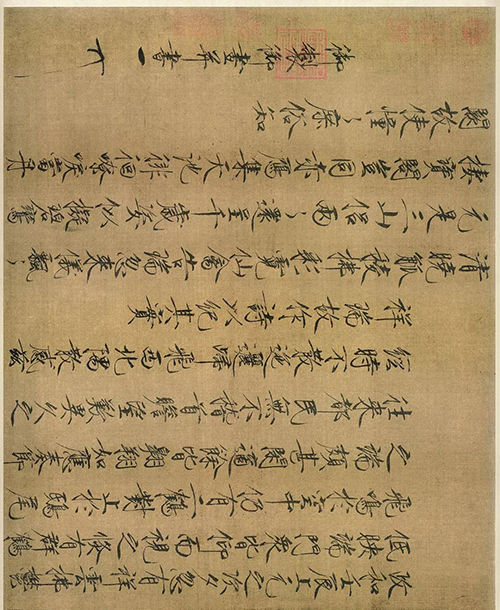 政和壬辰上元之次夕忽有祥雲拂鬱
低映端門衆皆仰而視之倏有群鶴
飛鳴於空中仍有二鶴對止於鴟尾
之端頗甚閑適餘皆翱翔如應奏節
往來都民無不稽首瞻望歎異久之
經時不散迤邐歸飛西北隅散感茲
祥瑞故作詩以紀其實
清曉觚稜拂彩霓仙禽告瑞忽來儀飄〻
元是三山侶兩〻還呈千歲姿似擬碧鸞
棲寶閣豈同赤雁集天池徘徊嘹唳當丹
闕故使憧〻庶俗知
御製御畫并書